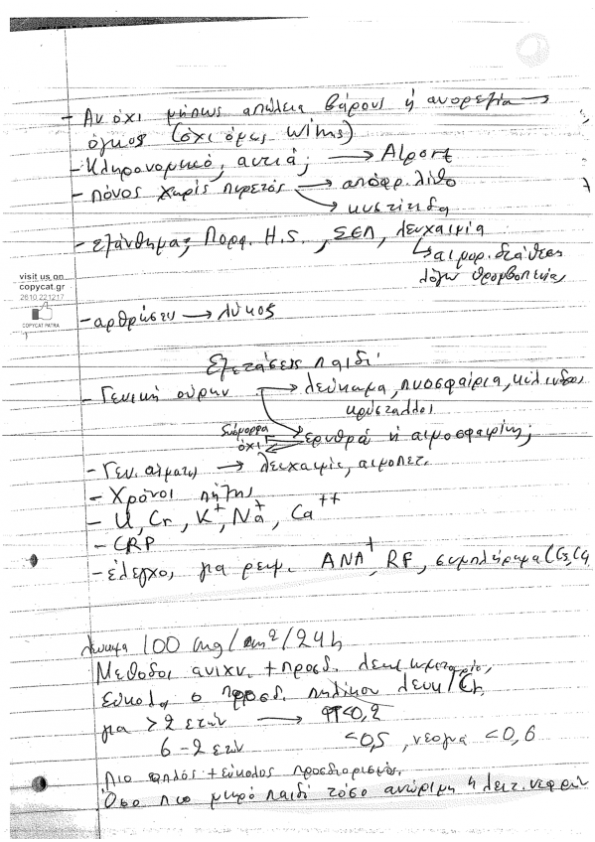 - Αν όχι μήπως απώλεια βάρους ή ανορεξία →
όγκος (όχι όμως Wilms)
- Κληρονομικό, αυτιά; → Alport
- πόνος χωρίς πυρετός → αποφρ. λίθο
→ κυστίτιδα
- εξάνθημα; Πορφ. H.S., ΣΕΛ, λευχαιμία
↳ αιμορ. διάθεση
λόγω θρομβοπενίας
visit us on
copycat.gr
2610 221217
COPYCAT PATRA
- αρθρώσεις → λύκος
Εξετάσεις παιδί
- Γενική ούρων → λεύκωμα, πυοσφαίρια, κύλινδροι
κρύσταλλοι
→ ερυθρά ή αιμοσφαιρίνη;
δύσμορφα
όχι
- Γεν. αίματος → λευχαιμίες, αιμοπετ.
- Χρόνοι πήξης
- U, Cr, K⁺, Na⁺, Ca⁺⁺
- CRP
- έλεγχος για ρευμ. ANA⁺, RF, συμπλήρωμα (C3, C4
Λεύκωμα 100 mg/m²/24h
Μέθοδοι ανιχν. + προσδ. λευκωματουρίας
εύκολος ο προσδ. πηλίκου λευκ/Cr
για > 2 ετών → <0,2
6 - 2 ετών <0,5, νεογνά <0,6
Πιο απλός + εύκολος προσδιορισμός.
Όσο πιο μικρό παιδί τόσο ανώριμη η λειτ. νεφρών